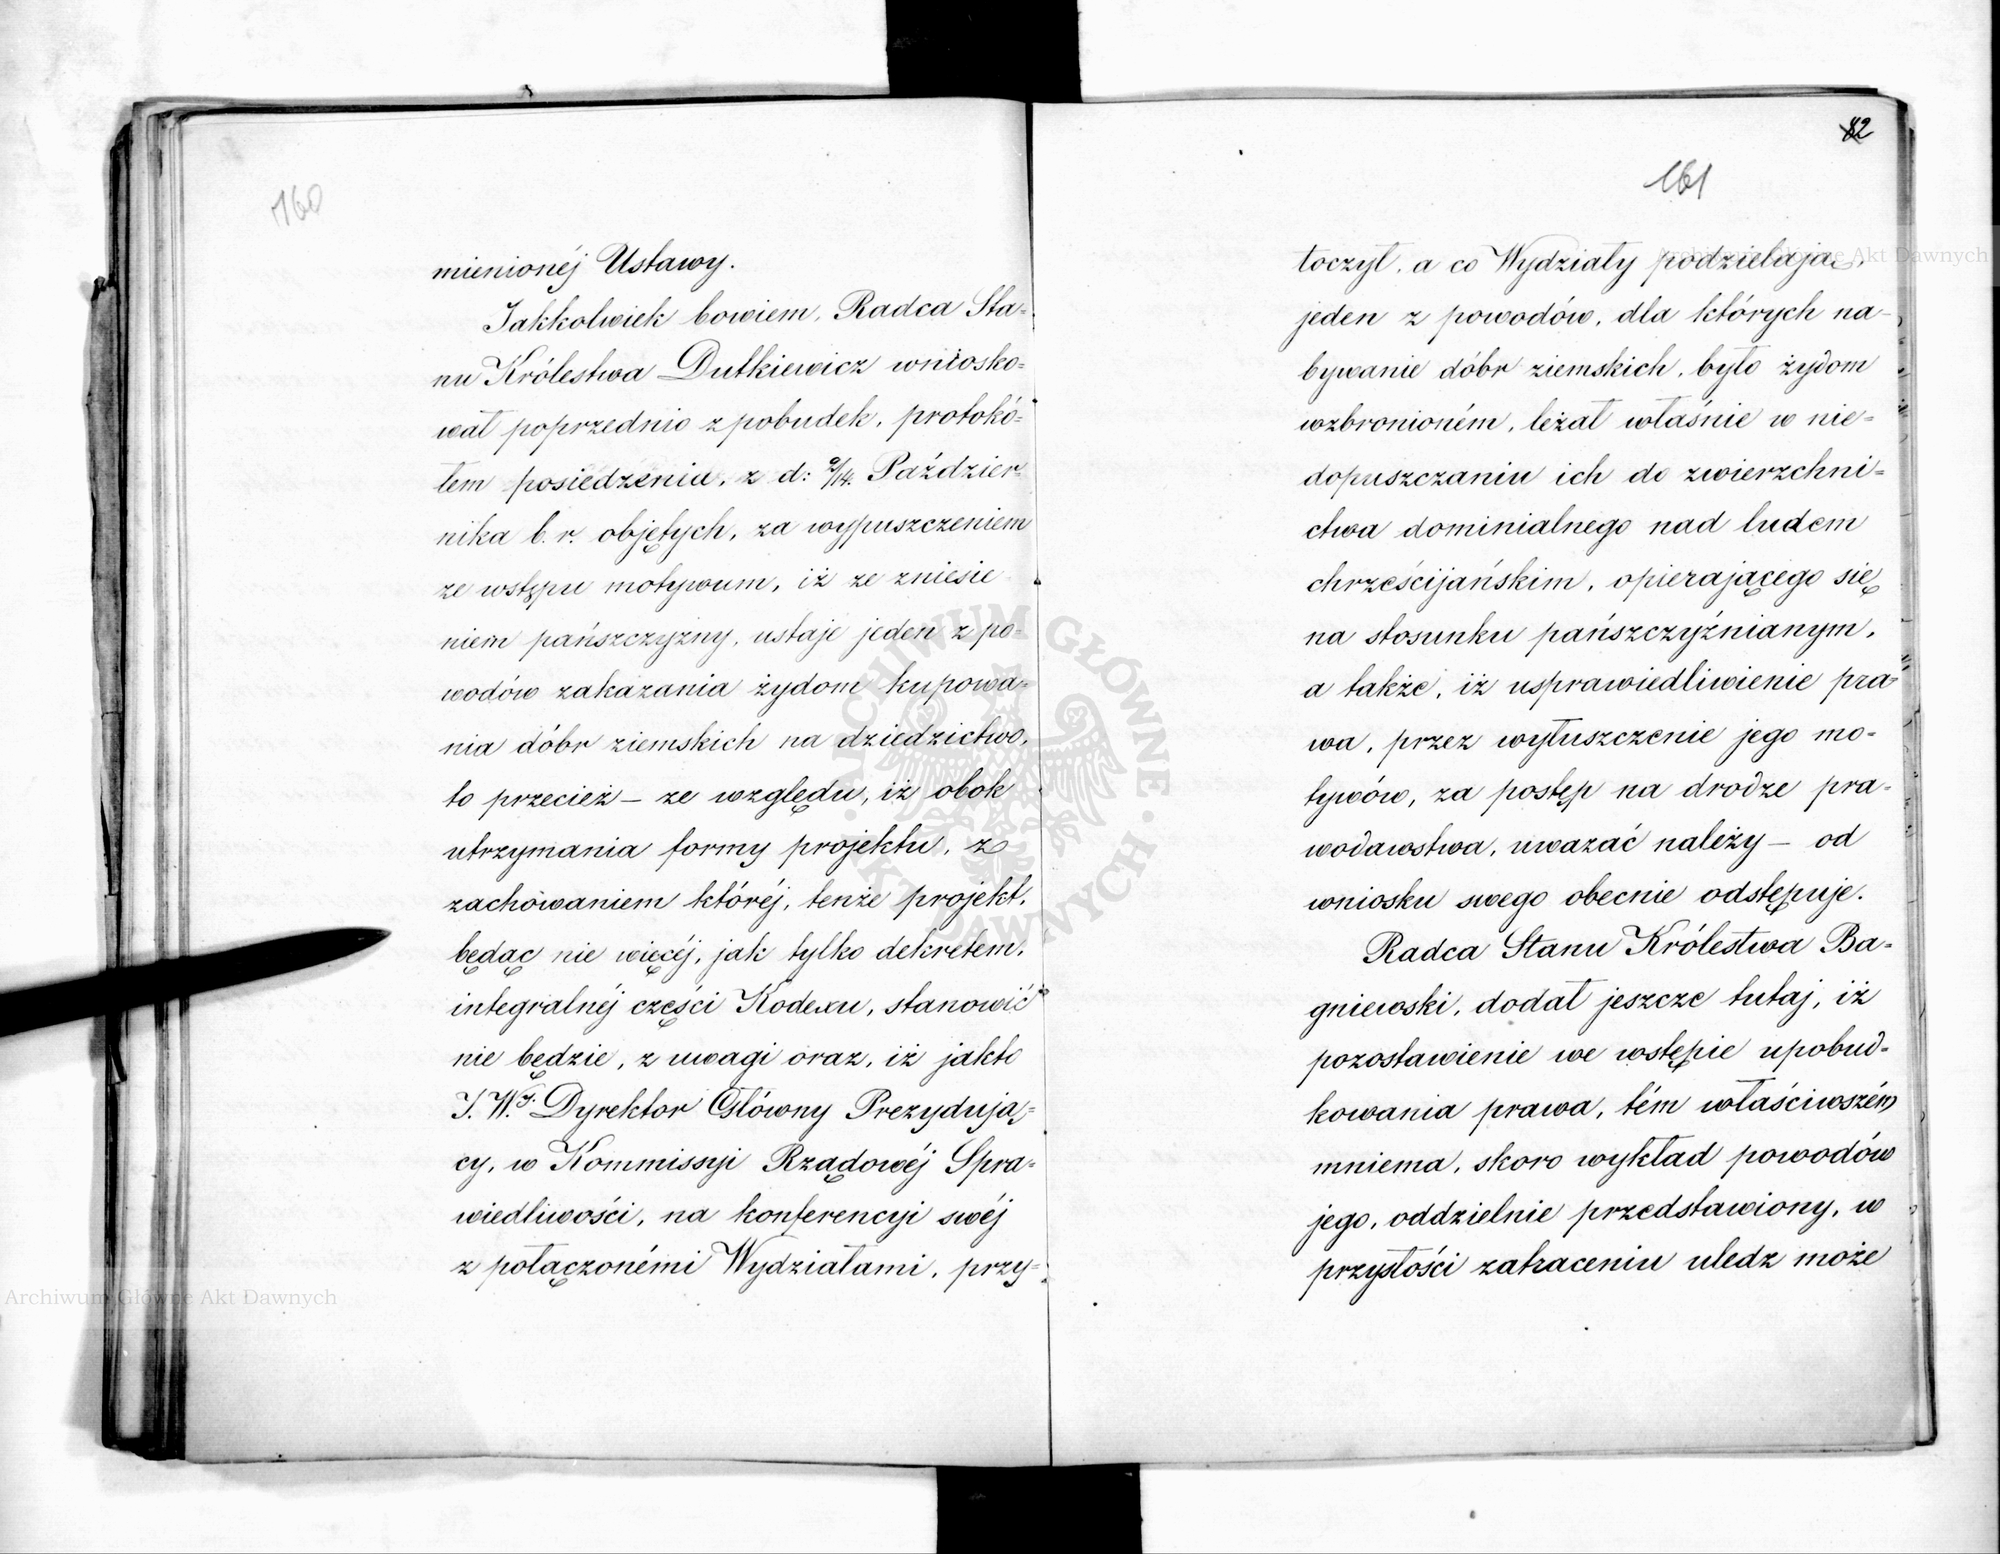 160
mienionéj Ustawy.
Jakkolwiek bowiem, Radca Sta=
nu Królestwa Dutkiewicz wniosko=
wał poprzednio z pobudek, protokó=
łem posiedzenia, z d: 2/14. Paździer=
nika b. r. objętych, za wypuszczeniem
ze wstępu motywum, iż ze zniesie
niem pańszczyzny, ustaje jeden z po=
wodów zakazania żydom kupowa=
nia dóbr ziemskich na dziedzictwo,
to przecież – ze względu, iż obok
utrzymania formy projektu, z
zachowaniem któréj, tenże projekt,
będąc nie więcéj, jak tylko dekretem,
integralnéj części Kodexu, stanowić
nie będzie, z uwagi oraz, iż jakto
J. W.y. Dyrektor Główny Prezydują=
cy, w Kommissyi Rządowéj Spra=
wiedliwości, na konferencyi swéj
z połączonémi Wydziałami, przy=
82
161
toczył, a co Wydziały podzielają,
jeden z powodów, dla których na=
bywanie dóbr ziemskich, było żydom
wzbronioném, leżał właśnie w nie=
dopuszczaniu ich do zwierzchni=
ctwa dominialnego nad ludem
chrześcijańskim, opierającego się
na stosunku pańszczyźnianym,
a także, iż usprawiedliwienie pra=
wa, przez wyłuszczenie jego mo=
tywów, za postęp na drodze pra=
wodawstwa, uwazać należy – od
wniosku swego obecnie odstępuje.
Radca Stanu Królestwa Ba=
gniewski, dodał jeszcze tutaj, iż
pozostawienie we wstępie upobud=
kowania prawa, tém właściwszém
mniema, skoro wykład powodów
jego, oddzielnie przedstawiony, w
przyszłości zatraceniu uledz może
Archiwum Główne Akt Dawnych
Archiwum Główne Akt Dawnych
ARCHIWUM GŁÓWNE AKT DAWNYCH